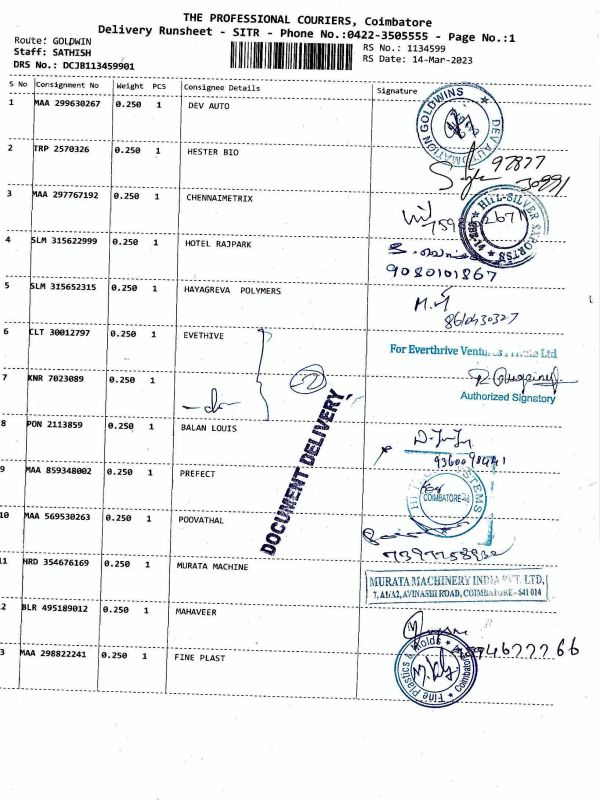 THE PROFESSIONAL COURIERS, Coimbatore
Delivery Runsheet - SITR - Phone No.:0422-3505555 - Page No.:1
Route: GOLDWIN
Staff: SATHISH
DRS No.: DCJB113459901
RS No.: 1134599
RS Date: 14-Mar-2023
S No Consignment No Weight PCS Consignee Details Signature
1 MAA 299630267 0.250 1 DEV AUTO
DEV AUTOMATION GOLDWINS
2 TRP 2570326 0.250 1 HESTER BIO
97877
30891
3 MAA 297767192 0.250 1 CHENNAIMETRIX
759 2671
HILL-SILVER EXPORTSS
4 SLM 315622999 0.250 1 HOTEL RAJPARK
9080101867
5 SLM 315652315 0.250 1 HAYAGREVA POLYMERS
M.
8610430327
6 CLT 30012797 0.250 1 EVETHIVE
For Everthrive Ventures Private Ltd
7 KNR 7023089 0.250 1
-do-
2
Authorized Signatory
DOCUMENT DELIVERY
8 PON 2113859 0.250 1 BALAN LOUIS
9360098441
9 MAA 859348002 0.250 1 PREFECT
COIMBATORE-14
10 MAA 569530263 0.250 1 POOVATHAL
11 HRD 354676169 0.250 1 MURATA MACHINE
MURATA MACHINERY INDIA PVT. LTD,
7, A1/A2, AVINASHI ROAD, COIMBATORE - 641 014
2 BLR 495189012 0.250 1 MAHAVEER
3 MAA 298822241 0.250 1 FINE PLAST
Fine Plastics & Molds * Coimbatore *